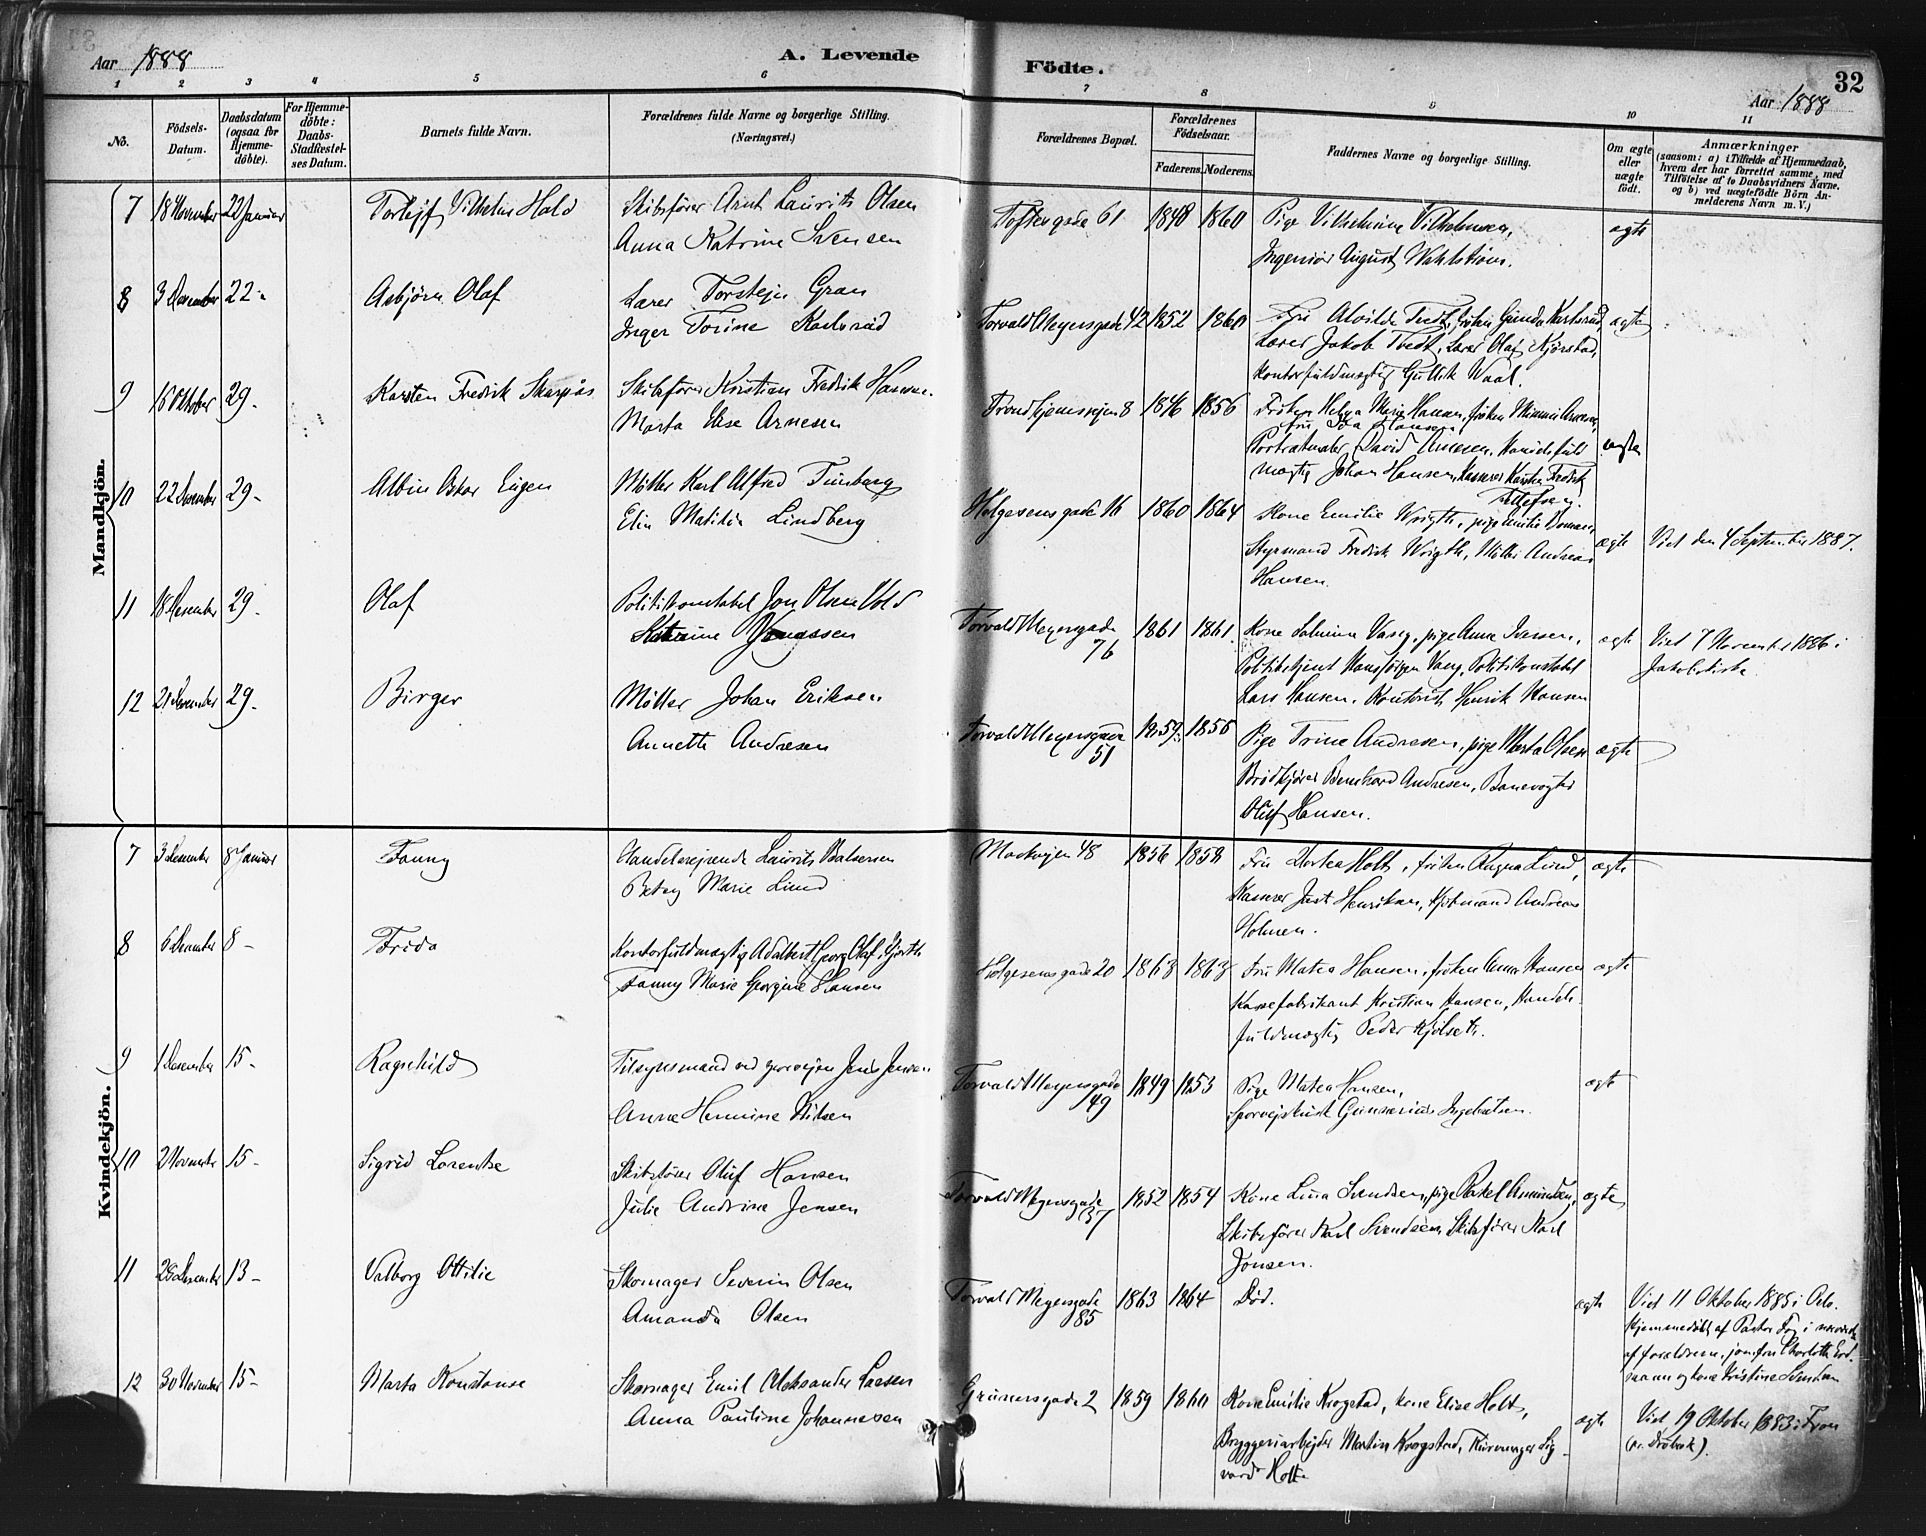 Aar 1888
A. Levende
Födte.
32
Aar 1888
1 2 3 4 5 6 7 8 9 10 11
No.
Födsels-
Datum.
Daabsdatum
(ogsaa for
Hjemme-
döbte).
For Hjemme-
döbte:
Daabs-
Stadfæstel-
ses Datum.
Barnets fulde Navn.
Forældrenes fulde Navne og borgerlige Stilling.
(Næringsvei.)
Forældrenes Bopæl.
Forældrenes
Födselsaar.
Faderens. Moderens.
Faddernes Navne og borgerlige Stilling.
Om ægte
eller
uægte
födt.
Anmærkninger
(saasom: a) i Tilfælde af Hjemmedaab,
hvem der har forrettet samme, med
Tilföielse af to Daabsvidners Navne.
og b) ved uægtefödte Börn An-
melderens Navn m. V.)
Mandkjön.
7 18 November 22 Januar Vilhelm Hald Skibsfører Arnt Laurits Olsen
Anna Katrine Svensen
Toftesgade 61 1848 1860 Pige Vilhelmine Vilhelmsen,
Ingeniør August Wahlstrøm.
ægte
8 3 Desember 22 - Asbjørn Olaf Lærer Torstejn Gran
Inger Torine Karlsrud
Torvald Meyersgade 42 1852 1860 Alvilde Tvedt, frøken Gunda Karlsrud,
Lærer Jakob Tvedt, Lærer Olaf Kjørstad,
Kontorfuldmægtig Gullik Waal.
ægte
9 16 Oktober 29 - Karsten Fredrik Skarpås Skibsfører Kristian Fredrik Hansen
Marta Elise Arnesen
Trondhjemsvejen 8 1846 1856 Frøken Helga Marie Hansen, frøken Arnesen,
fru Ida Hansen,
Portrætmaler David Arnesen, Handelsfuld
mægtig Johan Hansen, Kasserer Karsten Fredrik
Tellefsen.
ægte
10 22 Desember 29 - Albin Oskar Eugen Møller Karl Alfred
Elin Matilda Lindberg
Helgesensgade 16 1860 1864 Kone Emilie Wrigth, pige Emilie
Styrmand Fredrik Wrigth, Møller Andreas
Hansen.
ægte Viet den 4 September 1887.
11 18 Desember 29 - Olaf Politikonstabel Jon Olsen Vold
Jonassen
Torvald Meyersgade
76
1861 1861. Kone Vang, pige Anna Iversen,
Politibetjent Hans Jørgen Vang, Politikonstabel
Lars Hansen, Kontorist Henrik Hansen
ægte Viet 7 November 1886 i
Jakobskirke.
12 21 Desember 29 - Birger Møller Johan Eriksen
Annette Andresen
Torvald Meyersgade
51
1859 1855 Pige Trine Andresen, pige Marta Olsen
Brødkjører Bernhard Andresen, Banevogter
Oluf Hansen.
ægte
Kvindekjön.
7 3 Desember 8 Januar Fanny Handelsrejsende Laurits
Betsy Marie Lund
48 1856 1858 Fru Dortea Holt, frøken Ragna Lund,
Kasserer Just Henriksen, Kjøbmand Andreas
Holmen.
ægte
8 6 Desember 8 - Frida Kontorfuldmægtig Adalbert Georg Olaf Hjorth
Fanny Marie Georgine Hansen
Helgesensgade 20 1863 1863 Fru Matea Hansen, frøken Anna Hansen
fabrikant Kristian Hansen, Handels-
fuldmægtig Peder Kjølseth.
ægte
9 1 Desember 15 - Ragnhild Tilsynsmand ved sporvejen Jens Jensen
Anna Hermine Nilsen
Torvald Meyersgade
49
1849 1853 Pige Matea Hansen,
Sporvejskusk Gunerius Ingebretsen.
ægte
10 2 November 15 - Sigrid Lorentse Skibsfører Oluf Hansen
Julie Andrine Jensen
Torvald Meyersgade
37
1852 1854 Kone Lina Svendsen, pige Rakel Amundsen,
Skibsfører Karl Svendsen, Skibsfører Karl
Jonsen.
ægte
11 Desember 13 - Valborg Ottilie Skomager Severin Olsen
Amanda Olsen
Torvald Meyersgade
85
1863 1864 Død.
ægte Viet 11 Oktober 1885 i Oslo.
Hjemmedøbt af Pastor i nærværelse
af forældrene, jomfru Charlotte
og kone Kristine
12 30 November 15 - Marta Konstanse Skomager Emil Aleksander Larsen
Anna Pauline Johannesen
Grünersgade 2 1859 1860 Kone Emilie Krogstad, kone Elise Holt,
Bryggeriarbejder Martin Krogstad, Sig-
vard Holt.
ægte Viet 19 Oktober 1883 i Fron
(pr. Drøbak).